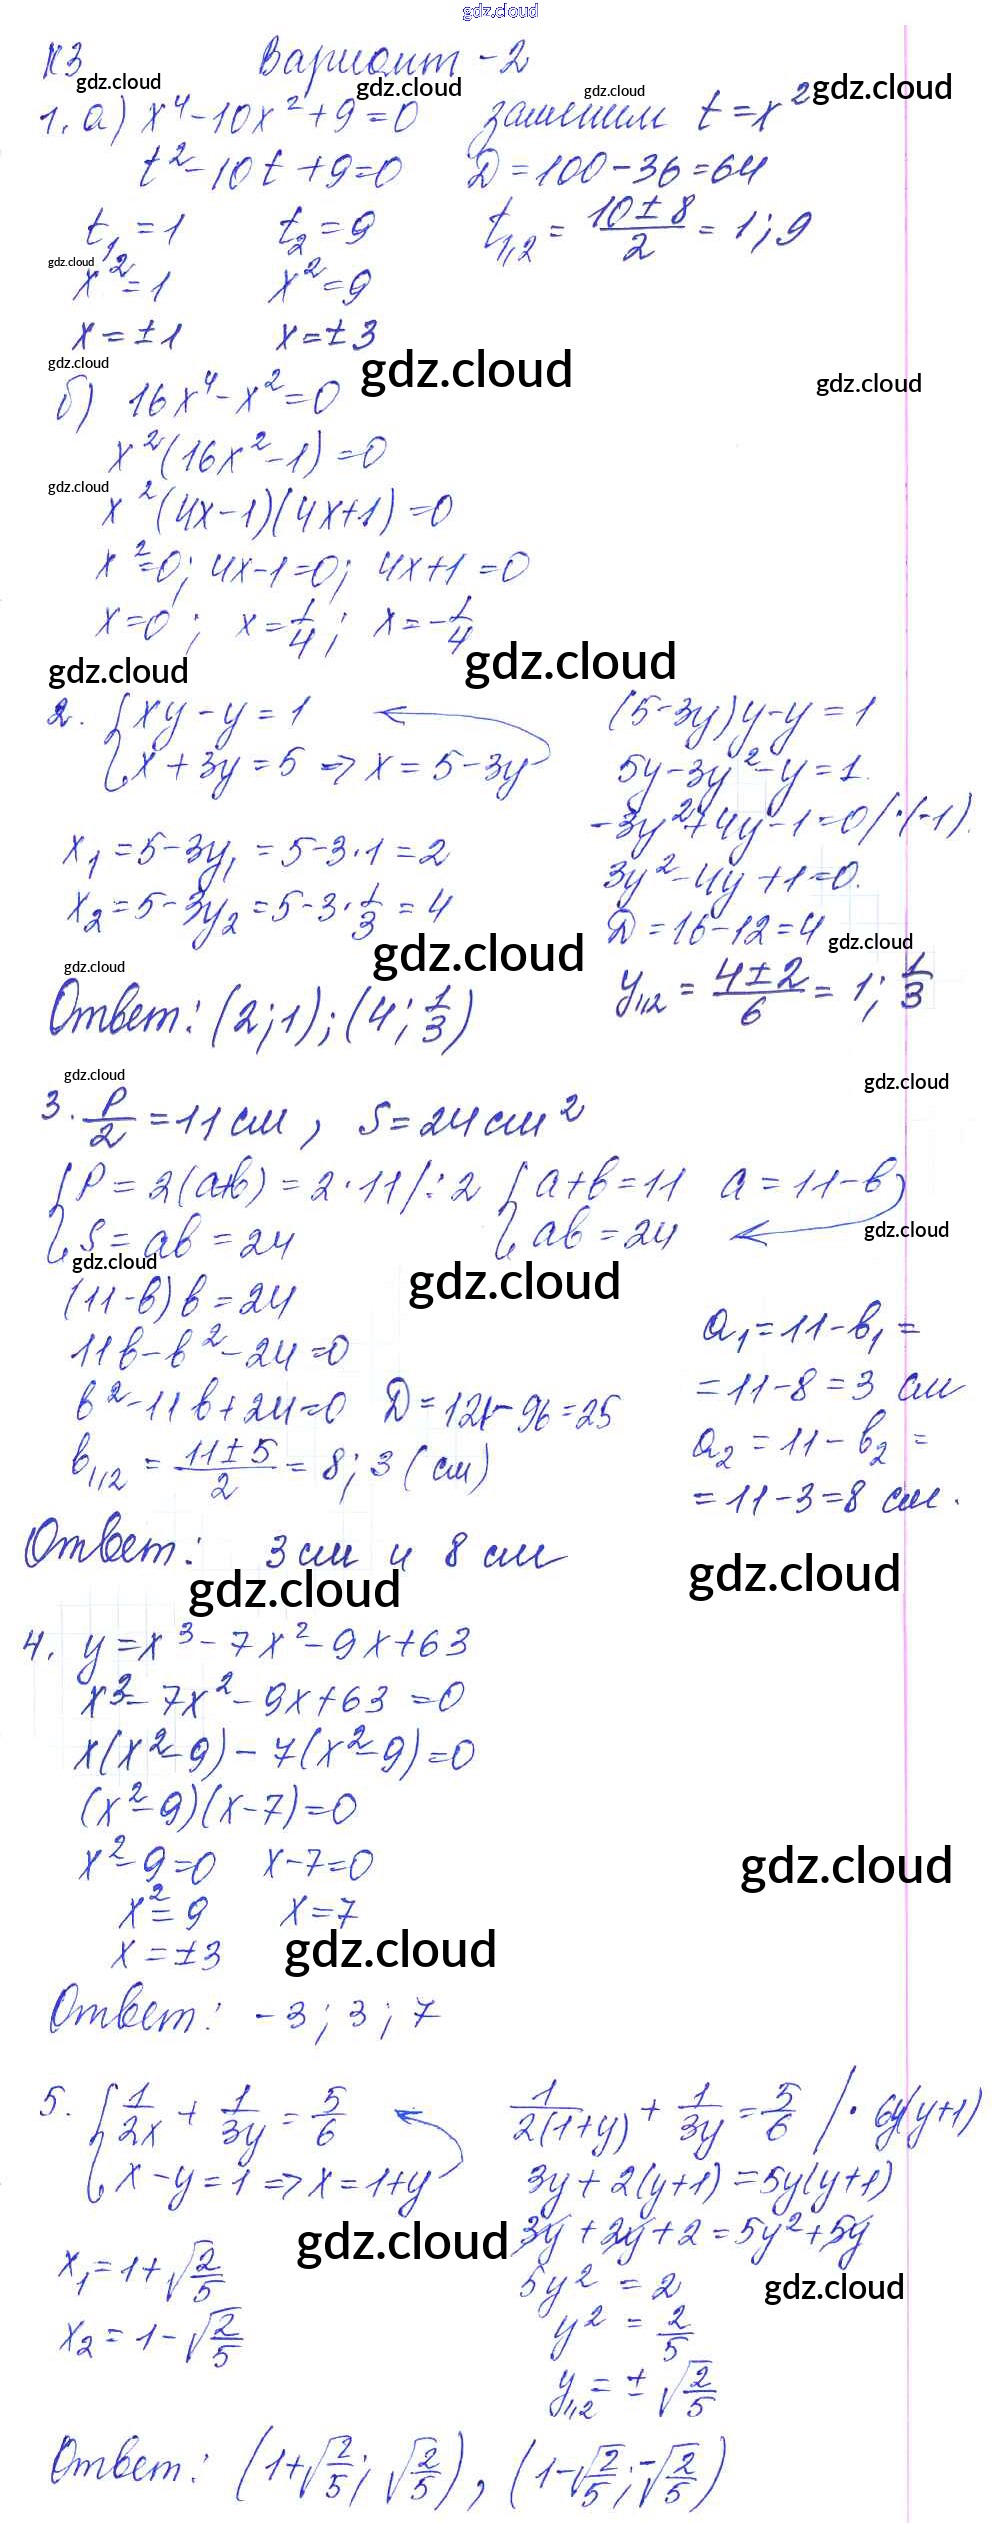 gdz.cloud
К3 Вариант - 2
gdz.cloud gdz.cloud gdz.cloud gdz.cloud
1. а) x⁴ - 10x² + 9 = 0 заменим t = x²
t² - 10t + 9 = 0 D = 100 - 36 = 64
t₁ = 1 t₂ = 9 t₁,₂ = (10 ± 8)/2 = 1; 9
gdz.cloud
x² = 1 x² = 9
x = ±1 x = ±3
gdz.cloud gdz.cloud gdz.cloud
б) 16x⁴ - x² = 0
x²(16x² - 1) = 0
gdz.cloud
x²(4x - 1)(4x + 1) = 0
x² = 0; 4x - 1 = 0; 4x + 1 = 0
x = 0; x = 1/4; x = -1/4
gdz.cloud gdz.cloud
2. { xy - y = 1 (5 - 3y)y - y = 1
x + 3y = 5 => x = 5 - 3y 5y - 3y² - y = 1.
-3y² + 4y - 1 = 0 / ·(-1).
x₁ = 5 - 3y₁ = 5 - 3·1 = 2 3y² - 4y + 1 = 0.
x₂ = 5 - 3y₂ = 5 - 3·1/3 = 4 D = 16 - 12 = 4
gdz.cloud gdz.cloud gdz.cloud
y₁,₂ = (4 ± 2)/6 = 1; 1/3
Ответ: (2; 1); (4; 1/3)
gdz.cloud gdz.cloud
3. P/2 = 11 см, S = 24 см²
{ P = 2(a+b) = 2·11 /:2 { a + b = 11 a = 11 - b
S = ab = 24 ab = 24
gdz.cloud gdz.cloud gdz.cloud
(11 - b)b = 24
11b - b² - 24 = 0 a₁ = 11 - b₁ =
b² - 11b + 24 = 0 D = 121 - 96 = 25 = 11 - 8 = 3 см
b₁,₂ = (11 ± 5)/2 = 8; 3 (см) a₂ = 11 - b₂ =
= 11 - 3 = 8 см.
Ответ: 3 см и 8 см
gdz.cloud gdz.cloud
4. y = x³ - 7x² - 9x + 63
x³ - 7x² - 9x + 63 = 0
x(x² - 9) - 7(x² - 9) = 0
(x² - 9)(x - 7) = 0
x² - 9 = 0 x - 7 = 0
gdz.cloud
x² = 9 x = 7
x = ±3
gdz.cloud
Ответ: -3; 3; 7
5. { 1/2x + 1/3y = 5/6 1/2(1+y) + 1/3y = 5/6 / · 6y(y+1)
x - y = 1 => x = 1 + y 3y + 2(y+1) = 5y(y+1)
gdz.cloud
3y + 2y + 2 = 5y² + 5y
x₁ = 1 + √2/5 5y² = 2
gdz.cloud
x₂ = 1 - √2/5 y² = 2/5
y₁,₂ = ± √2/5
Ответ: (1+√2/5; √2/5), (1-√2/5; -√2/5)